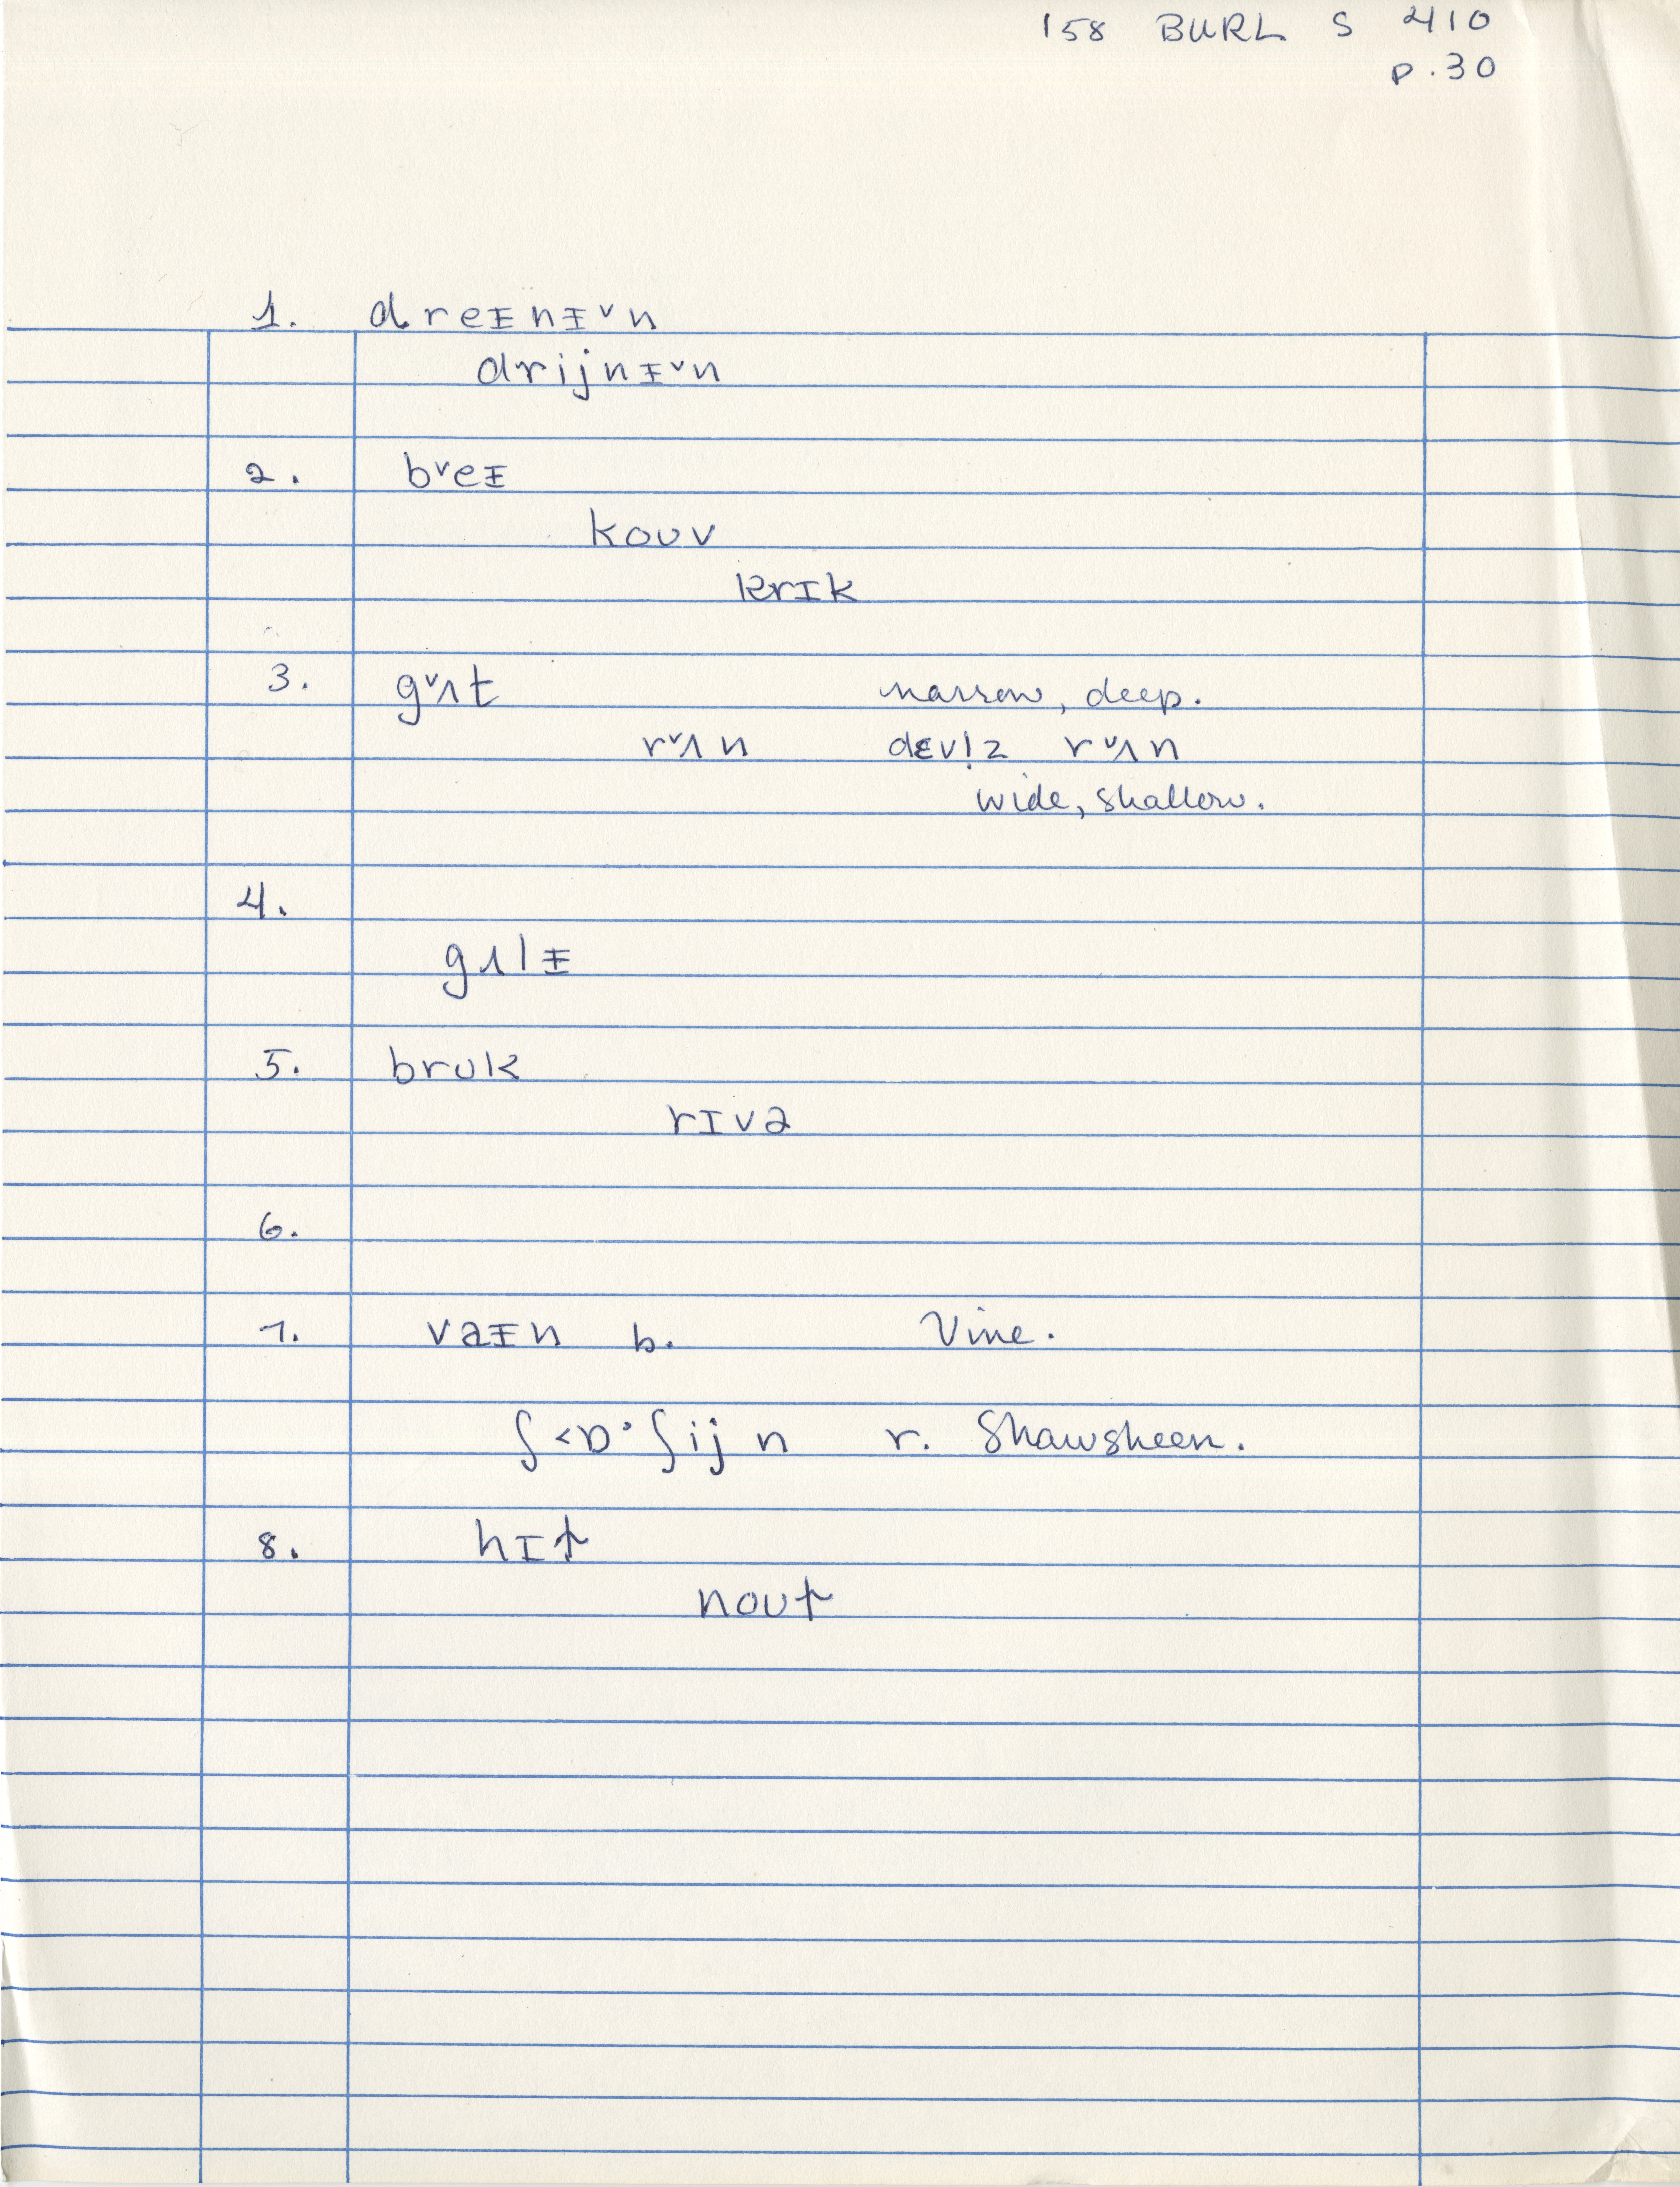 158 BURL S 410
p.30
1. dreᵻnᵻ˅n
drijnᵻ˅n
2. b˅eᵻ
kouv
krɪk
3. g˅ʌt narrow, deep.
r˅ʌn dɛvl̩z r˅ʌn
wide, shallow.
4.
gʌlᵻ
5. brʊk
rɪvə
6.
7. vaᵻn b. Vine.
ʃ<ɒ·ʃijn r. Shawsheen.
8. hɪƚ
nouƚ